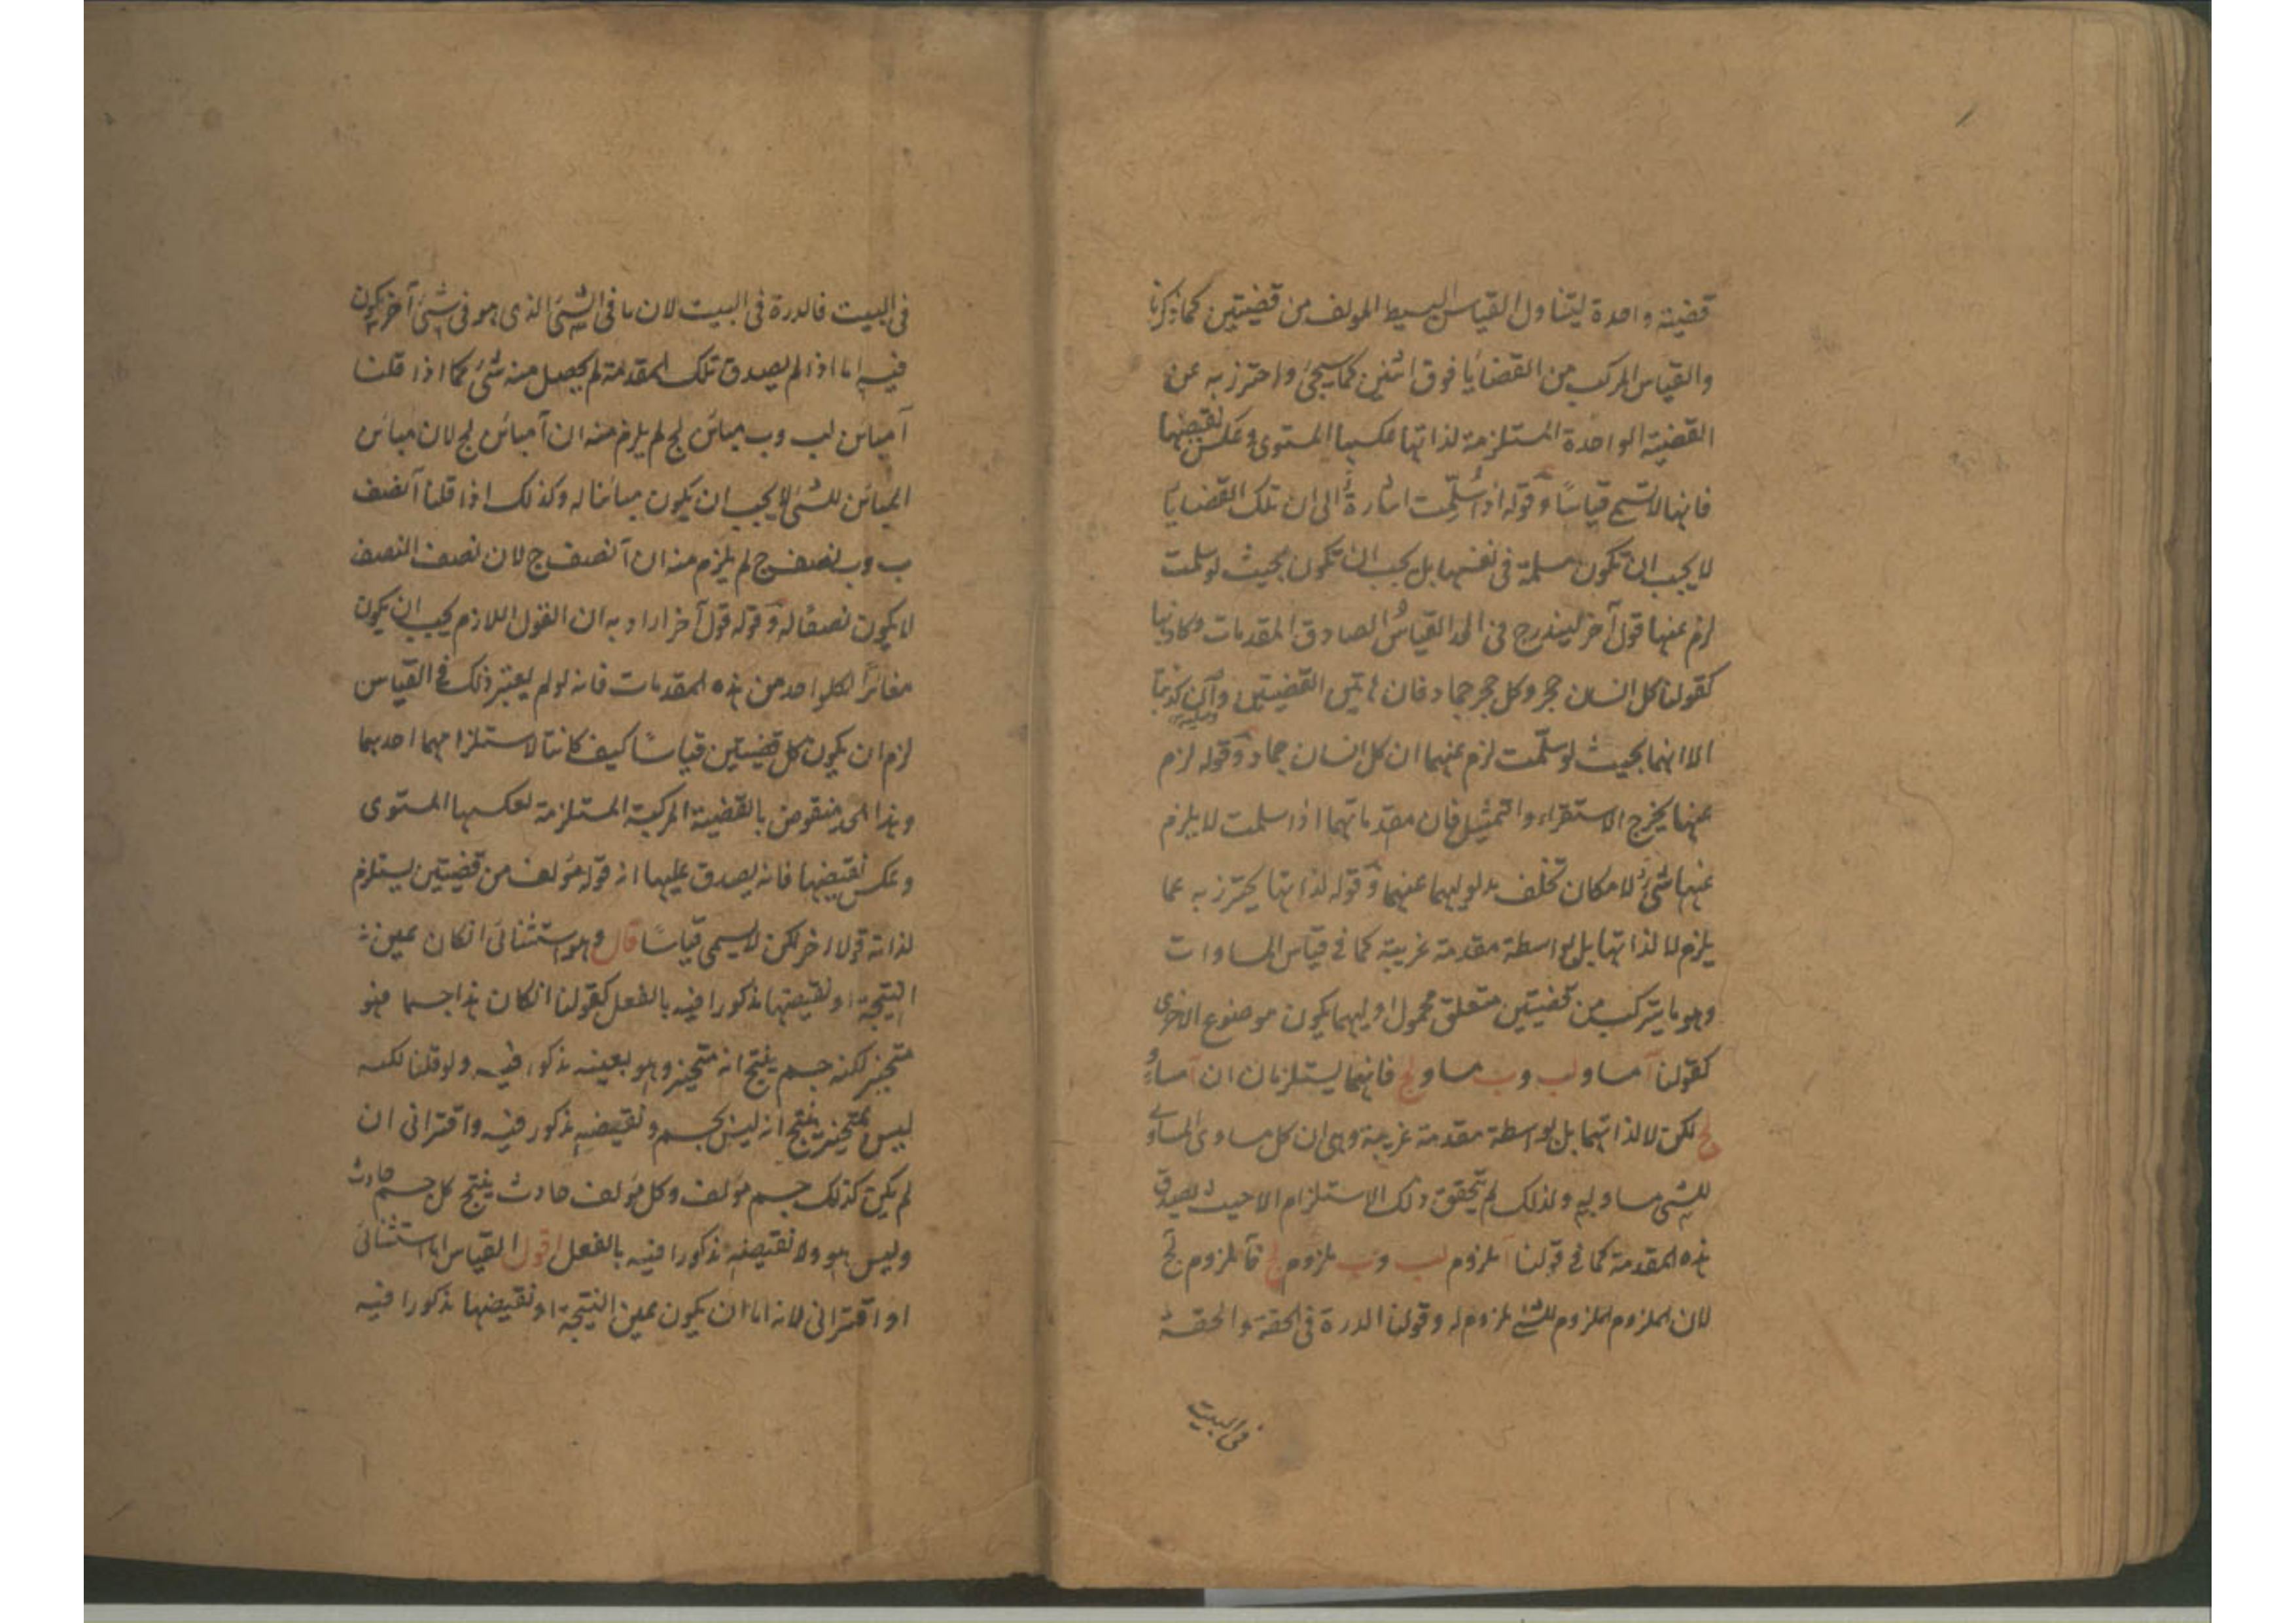 قضية واحدة ليتناول القياس البسيط المولف من قضيتين كما ذكرنا
والقياس المركب من القضايا فوق اثنين كما سيجئ واحترز به عن
القضية الواحدة المستلزمة لذاتها عكسها المستوى وعكس نقيضها
فانها لا تسمى قياسًا وقوله اذا سُلِّمت اشارةٌ الى ان تلك القضايا
لا يجب ان تكون مسلمة فى نفسها بل يجب ان تكون بحيث لو سلمت
لزم عنها قول آخر ليندرج فى الحد القياسُ الصادق المقدمات وكاذبها
كقولنا كل انسان حجر وكل حجر جماد فان هاتين القضيتين وان كذبتا
الا انهما بحيث لو سلّمت لزم عنهما ان كل انسان جماد وقوله لزم
عنها يخرج الاستقراء والتمثيل فان مقدماتهما اذا سلمت لا يلزم
عنها شئ لامكان تخلف مدلوليهما عنهما وقوله لذاتها يحترز به عما
يلزم لا لذاتها بل بواسطة مقدمة غريبة كما فى قياس المساوات
وهو ما يتركب من قضيتين متعلق محمول اوليهما يكون موضوع الاخرى
كقولنا آ مساو لب وب مساو لج فانهما يستلزمان ان آ مساوٍ
لج لكن لا لذاتهما بل بواسطة مقدمة غريبة وهى ان كل مساوى المساوى
للشئ مساو له ولذلك لم يتحقق ذلك الاستلزام الا حيث يصدق
هذه المقدمة كما فى قولنا آ ملزوم لب وب ملزوم لج فآ ملزوم لج
لان الملزوم الملزوم للشئ ملزوم له وقولنا الدرة فى الحقة والحقة
فى البيت
فى البيت فالدرة فى البيت لان ما فى الشئ الذى هو فى شئ آخر يكون
فيه اما اذا لم يصدق تلك المقدمة لم يحصل منه شئ كما اذا قلنا
آ مباين لب وب مباين لج لم يلزم منه ان آ مباين لج لان مباين
المباين للشئ لا يجب ان يكون مباينا له وكذلك اذا قلنا آ نصف
ب وب نصف ج لم يلزم منه ان آ نصف ج لان نصف النصف
لا يكون نصفا له وقوله قول آخر اراد به ان القول اللازم يجب ان يكون
مغائرًا لكل واحد من هذه المقدمات فانه لو لم يعتبر ذلك فى القياس
لزم ان يكون كل قضيتين قياسًا كيف كانتا لاستلزامهما احدهما
وهذا الحد منقوض بالقضية المركبة المستلزمة لعكسها المستوى
وعكس نقيضها فانه يصدق عليها انه قوله مؤلف من قضيتين يستلزم
لذاته قولا اخر لكن لا يسمى قياسًا قال وهو استثنائى انكان عين
النتيجة او نقيضها مذكورا فيه بالفعل كقولنا انكان هذا جسما فهو
متحيز لكنه جسم ينتج انه متحيز وهو بعينه مذكور فيه ولو قلنا لكنه
ليس بمتحيز ينتج انه ليس بجسم ونقيضه مذكور فيه واقترانى ان
لم يكن كذلك جسم مؤلف وكل مؤلف حادث ينتج كل جسم حادث
وليس هو ولا نقيضه مذكورا فيه بالفعل اقول القياس اما استثنائى
او اقترانى لانه اما ان يكون عين النتيجة او نقيضها مذكورا فيه